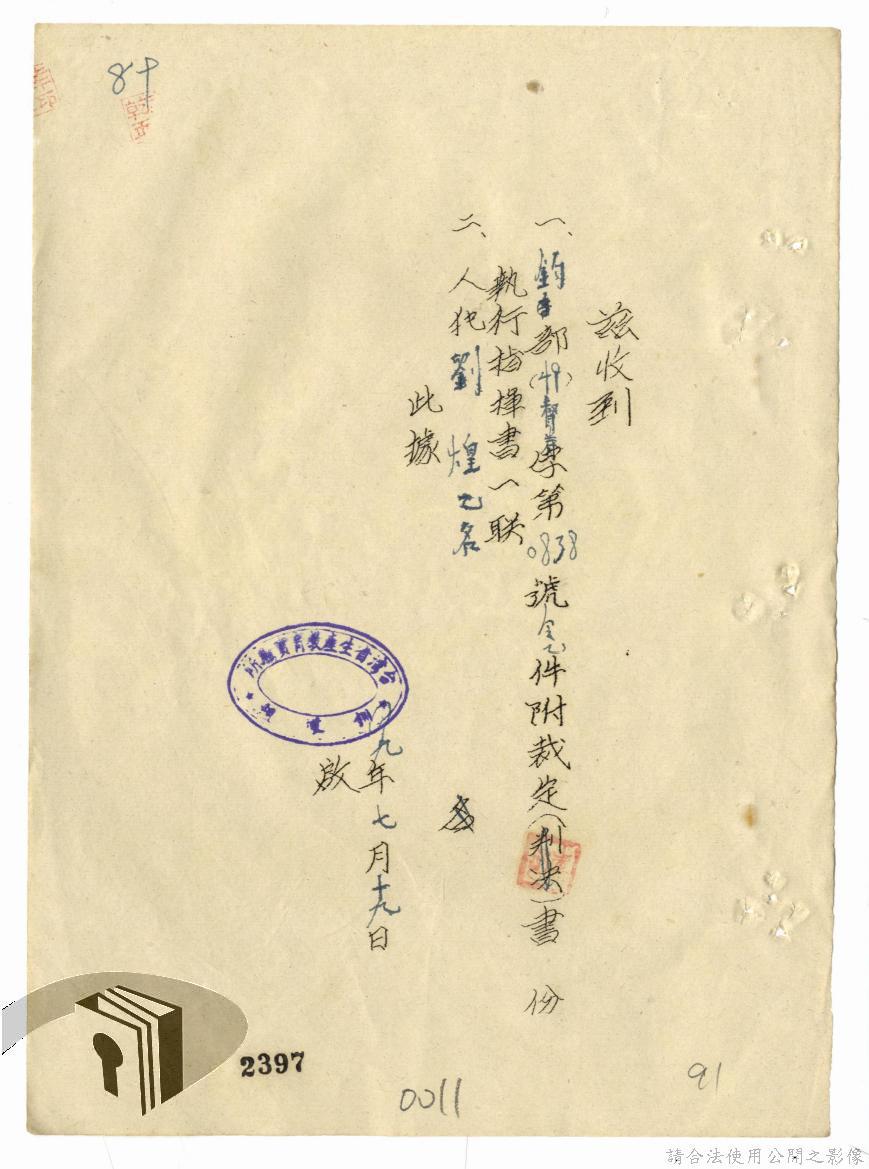 茲收到
一、鈞部(49)督字第0838號令乙件附裁定(判決)書 份
執行指揮書一联
二、人犯劉煌乙名
此據
四九年七月十九日
啟
台灣省生產教育實驗所
2397
0011
91
84
請合法使用公開之影像